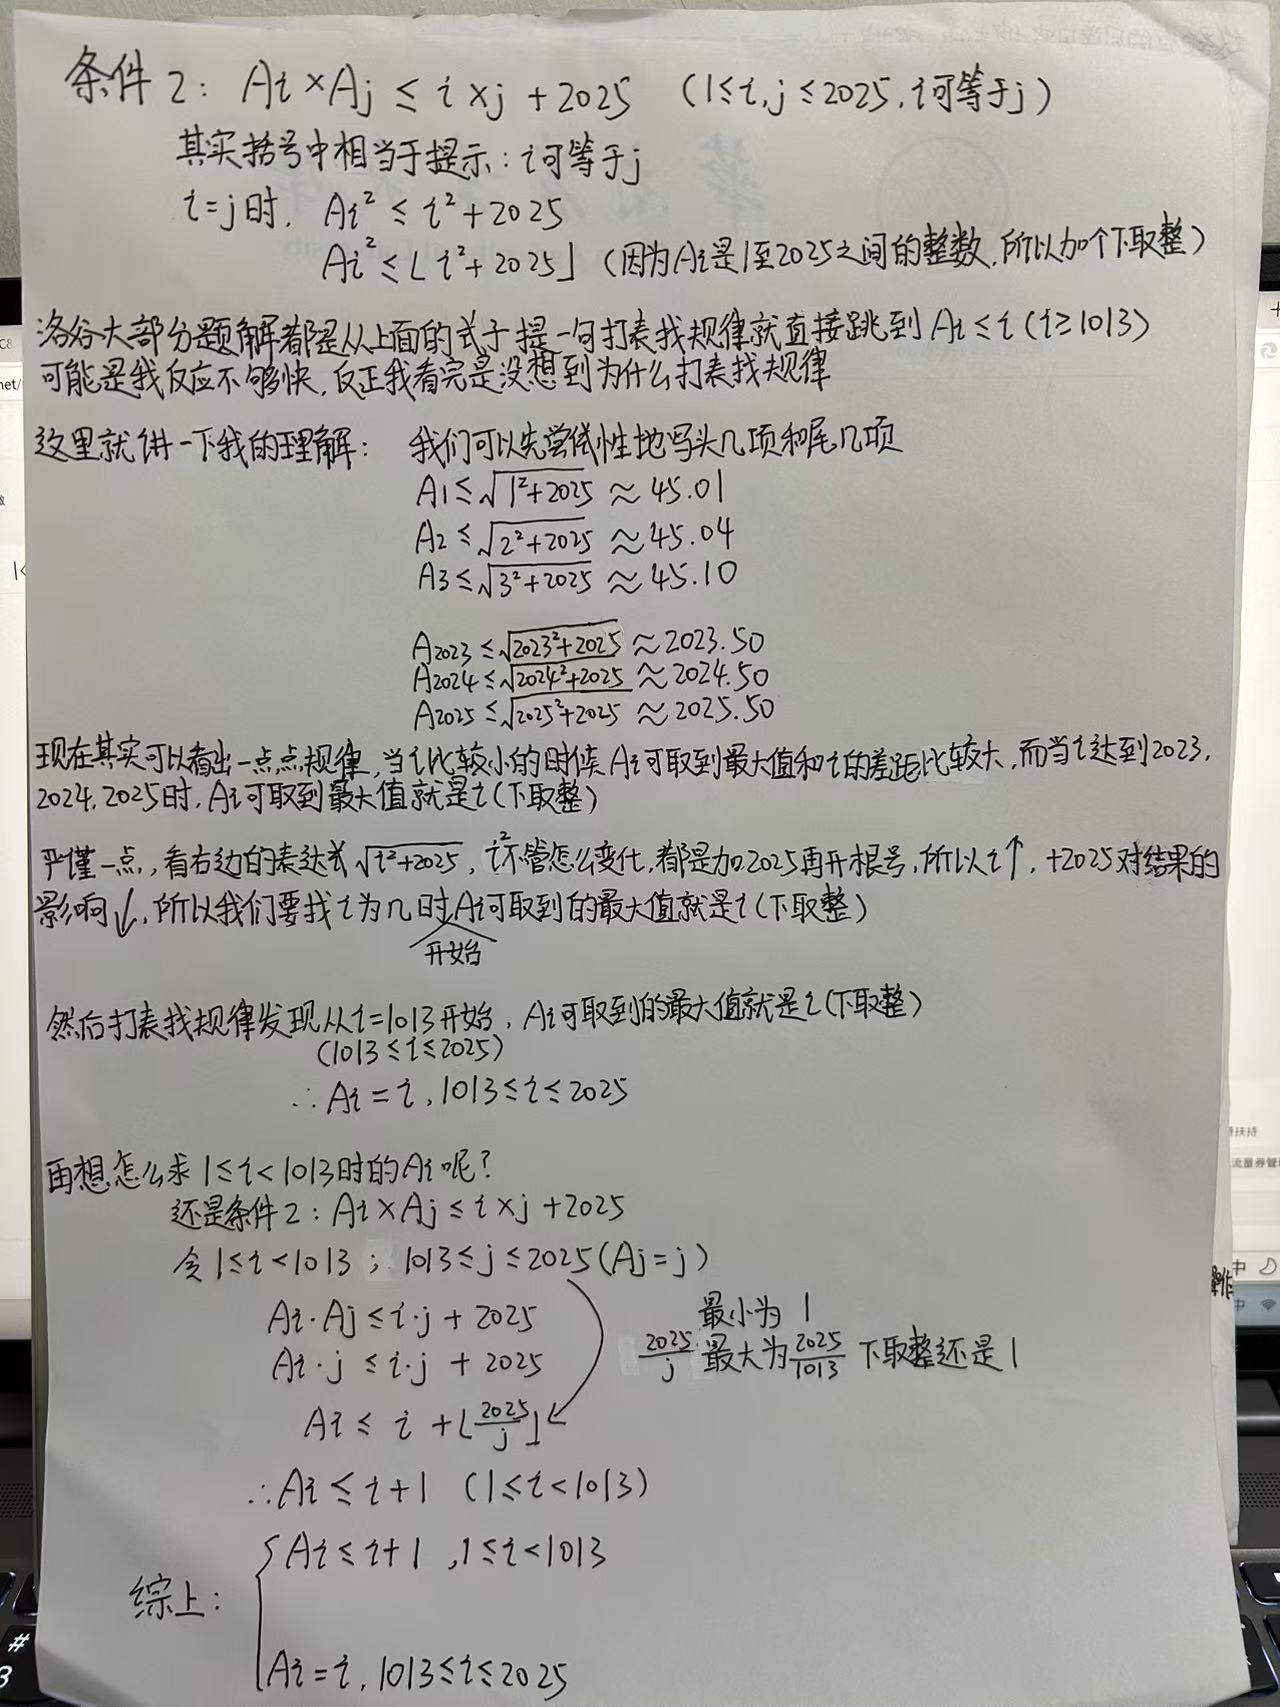 条件2: Ai×Aj ≤ i×j+2025 (1≤i,j≤2025,i可等于j)
其实括号中相当于提示:i可等于j
i=j时, Ai² ≤ i²+2025
Ai² ≤ ⌊i²+2025⌋ (因为Ai是1至2025之间的整数,所以加个下取整)
洛谷大部分题解都是从上面的式子提一句打表找规律就直接跳到Ai≤i(i≥1013)
可能是我反应不够快,反正我看完是没想到为什么打表找规律
这里就讲一下我的理解: 我们可以先尝试性地写头几项和尾几项
A1≤√(1²+2025) ≈45.01
A2≤√(2²+2025) ≈45.04
A3≤√(3²+2025) ≈45.10
A2023≤√(2023²+2025) ≈2023.50
A2024≤√(2024²+2025) ≈2024.50
A2025≤√(2025²+2025) ≈2025.50
现在其实可以看出一点点规律,当i比较小的时候Ai可取到最大值和i的差距比较大,而当i达到2023,
2024,2025时,Ai可取到最大值就是i(下取整)
严谨一点,看右边的表达式√(i²+2025),i²不管怎么变化,都是加2025再开根号,所以i↑,+2025对结果的
影响↓,所以我们要找i为几时Ai可取到的最大值就是i(下取整)
开始
然后打表找规律发现从i=1013开始,Ai可取到的最大值就是i(下取整)
(1013≤i≤2025)
∴Ai=i,1013≤i≤2025
再想怎么求1≤i<1013时的Ai呢?
还是条件2:Ai×Aj≤i×j+2025
令1≤i<1013; 1013≤j≤2025(Aj=j)
Ai·Aj≤i·j+2025
Ai·j≤i·j+2025
Ai≤i+⌊2025/j⌋
最小为1
2025/j 最大为2025/1013 下取整还是1
∴Ai≤i+1 (1≤i<1013)
综上: { Ai≤i+1 ,1≤i<1013
Ai=i,1013≤i≤2025
流量券管